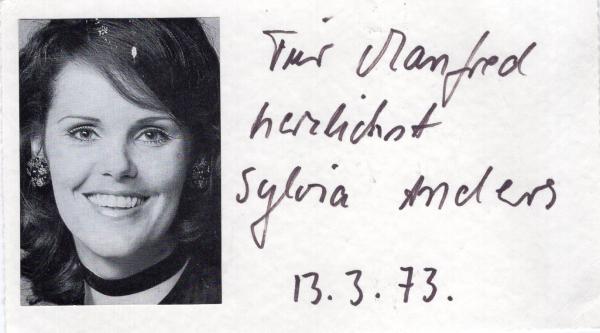 Für Manfred
herzlichst
Sylvia Anders
13.3.73.